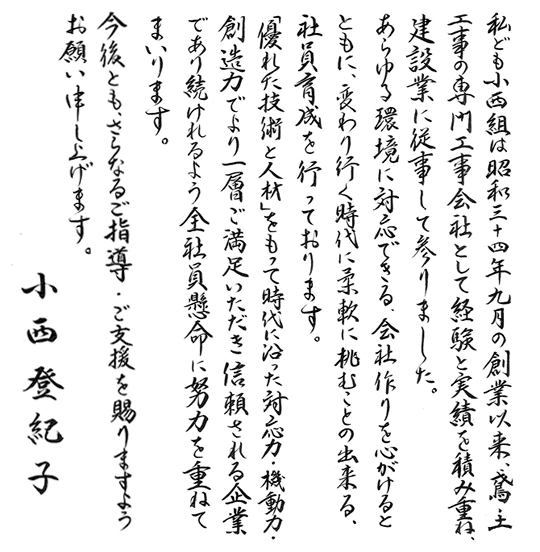 私ども小西組は昭和三十四年九月の創業以来、鳶・土
工事の専門工事会社として経験と実績を積み重ね、
建設業に従事して参りました。
あらゆる環境に対応できる、会社作りを心がけると
ともに、変わり行く時代に柔軟に挑むことの出来る、
社員育成を行っております。
「優れた技術と人材」をもって時代に沿った対応力・機動力・
創造力でより一層ご満足いただき信頼される企業
であり続けれるよう全社員懸命に努力を重ねて
まいります。
今後とも、さらなるご指導・ご支援を賜りますよう
お願い申し上げます。
小西登紀子